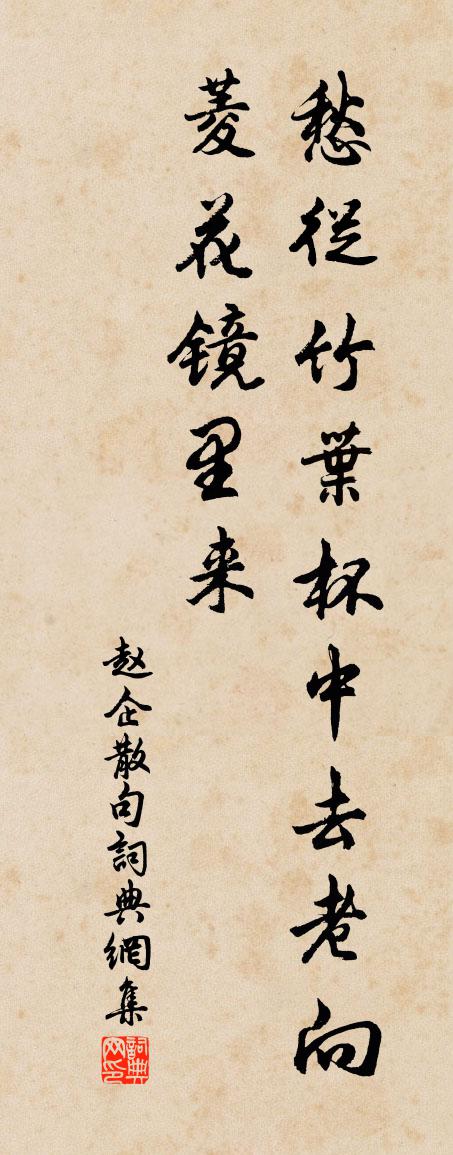 愁從竹葉杯中去老向
菱花镜里来
赵企散句詞典網集
詞典网印